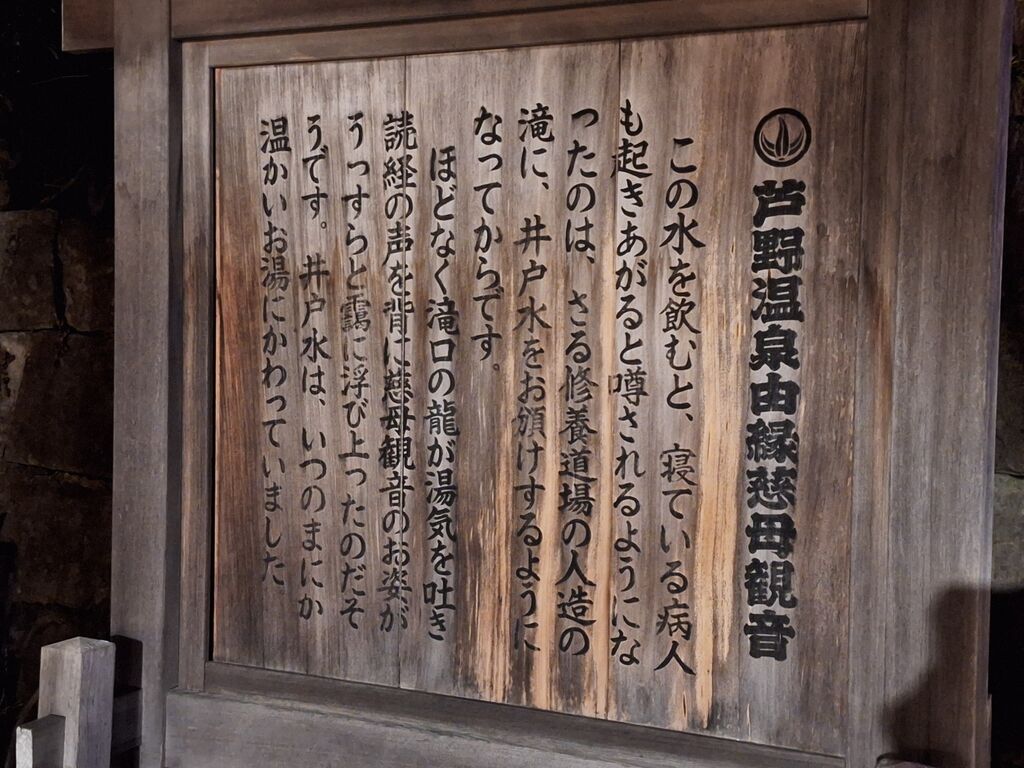 芦野温泉由縁慈母観音
この水を飲むと、寝ている病人
も起きあがると噂されるようにな
ったのは、さる修養道場の人造の
滝に、井戸水をお頒けするように
なってからです。
ほどなく滝口の龍が湯気を吐き
読経の声を背に慈母観音のお姿が
うっすらと靄に浮び上ったのだそ
うです。井戸水は、いつのまにか
温かいお湯にかわっていました